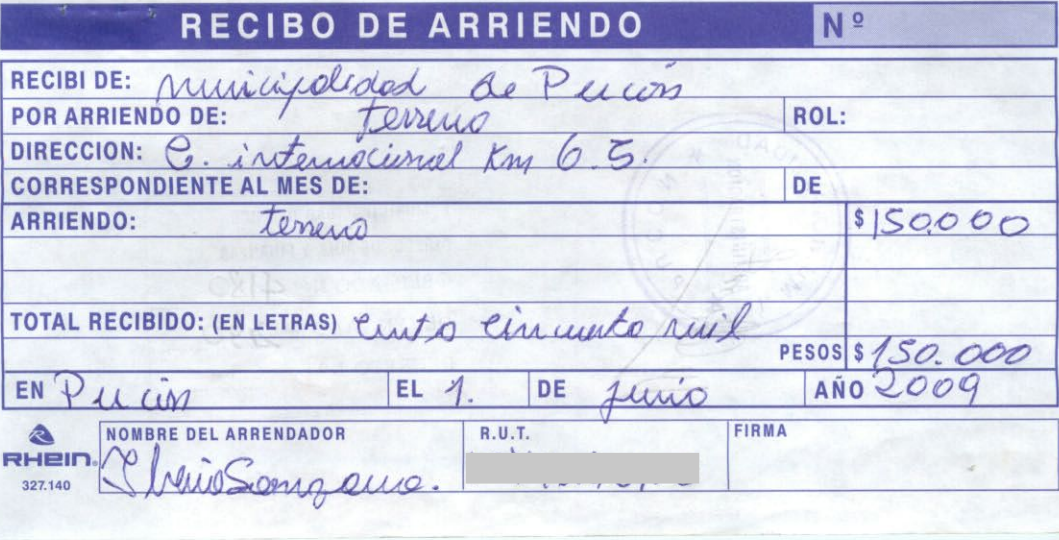 RECIBO DE ARRIENDO Nº
RECIBI DE: Municipalidad de Pucón
POR ARRIENDO DE: Terreno ROL:
DIRECCION: C. internacional Km 6.5.
CORRESPONDIENTE AL MES DE: DE
ARRIENDO: terreno $ 150.000
TOTAL RECIBIDO: (EN LETRAS) Cento Cincuenta mil
PESOS $ 150.000
EN Pucón EL 1. DE Junio AÑO 2009
RHEIN. NOMBRE DEL ARRENDADOR R.U.T. FIRMA
327.140 Sanzana.